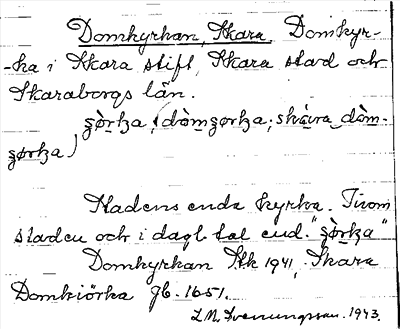 Domkyrkan, Skara. Domkyr-
-ka i Skara stift, Skara stad och
Skaraborgs län.
ʒòrka (dòmʒorka, skàra dòm-
ʒørka)
Stadens enda kyrka. Inom
staden och i dagl. tal end. "ʒòrka"
Domkyrkan Stk 1941, Skara
Domkiörka Jb. 1651.
L.M. Svenungsson. 1943.